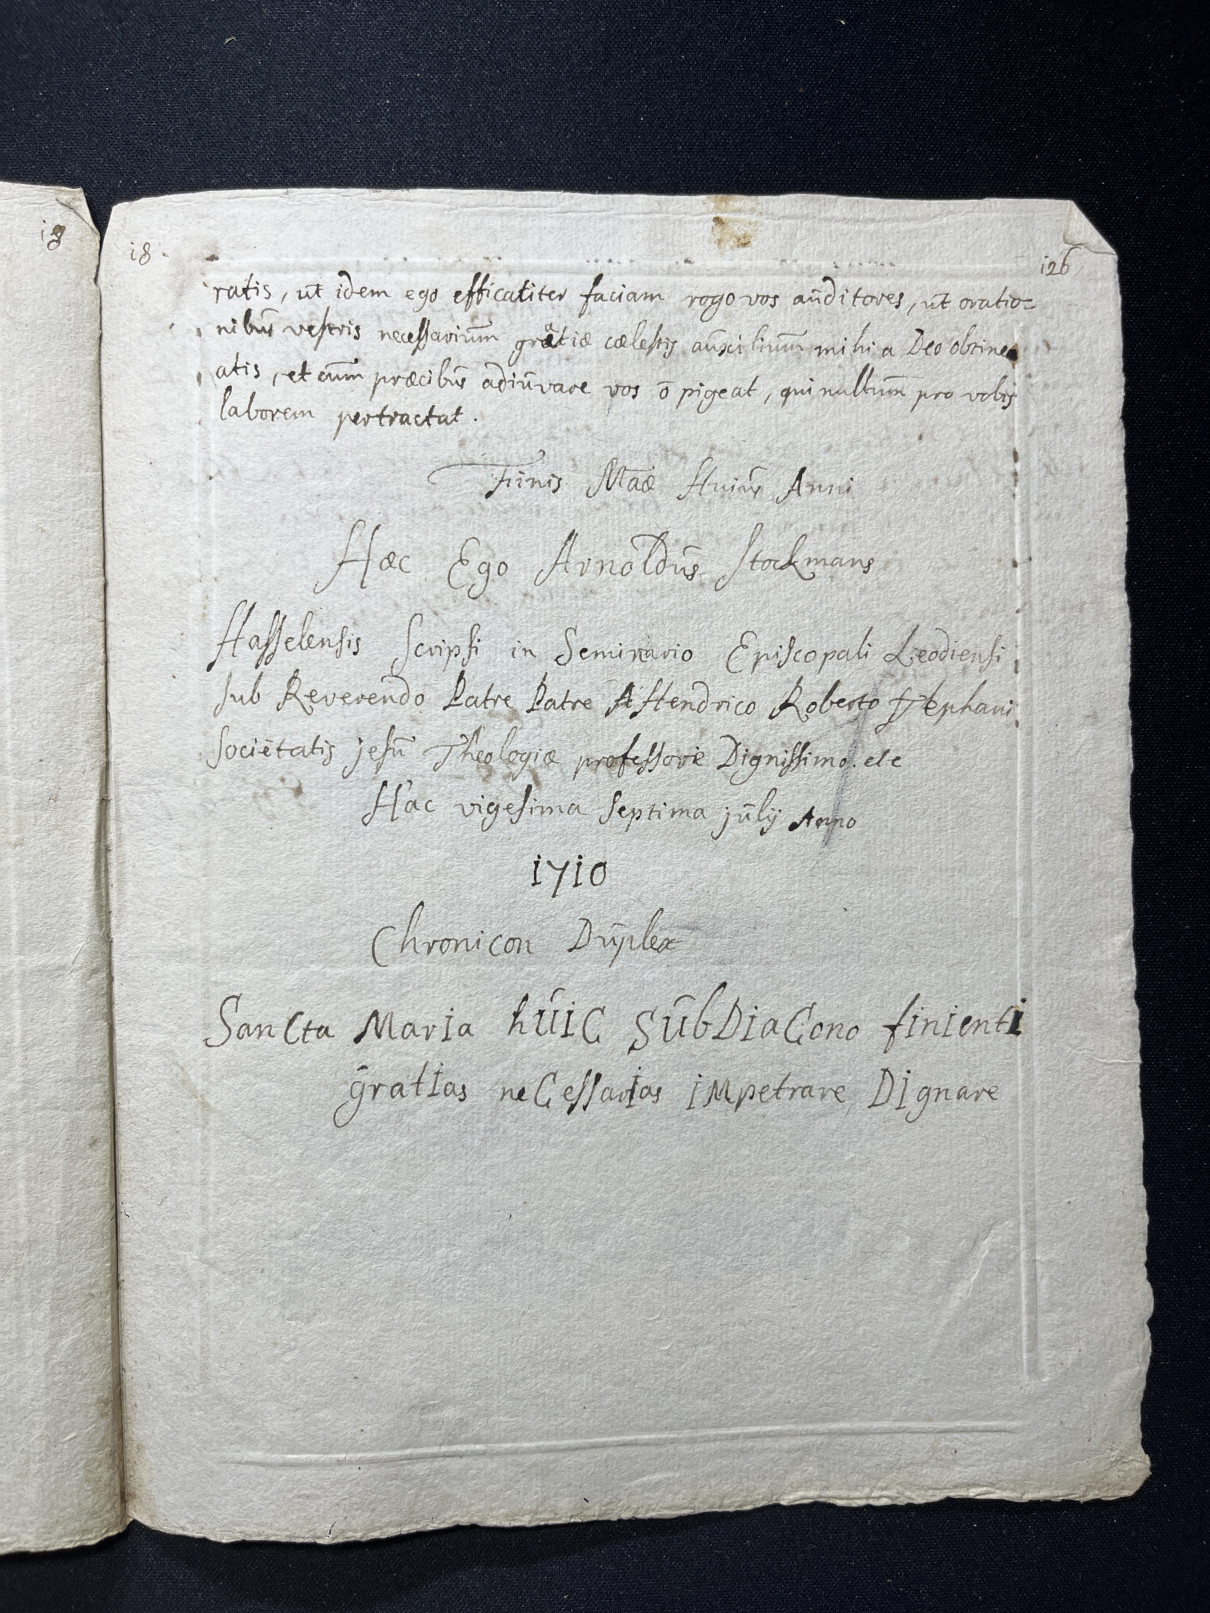 18
18
126
ratis, ut idem ego efficaliter faciam rogo vos auditores, ut oratio=
nibus vestris necessarium gratiæ cælestis auxilium mihi a Deo obtine
atis, et cum præcibus adiuvare vos õ pigeat, qui nullum pro vobis
laborem pertractat.
Finis Maæ Huius Anni
Hæc Ego Arnoldus Stockmans
Hasselensis Scripsi in Seminario Episcopali Leodiensi
sub Reverendo Patre Patre Hendrico Roberto Stephani
societatis jesu Theologiæ professore Dignissimo. etc
Hac vigesima Septima july Anno
1710
Chronicon Duplex
SanCta MarIa hUIC SUbDIaCono fInIentI
gratIas neCessarIas IMpetrare DIgnare